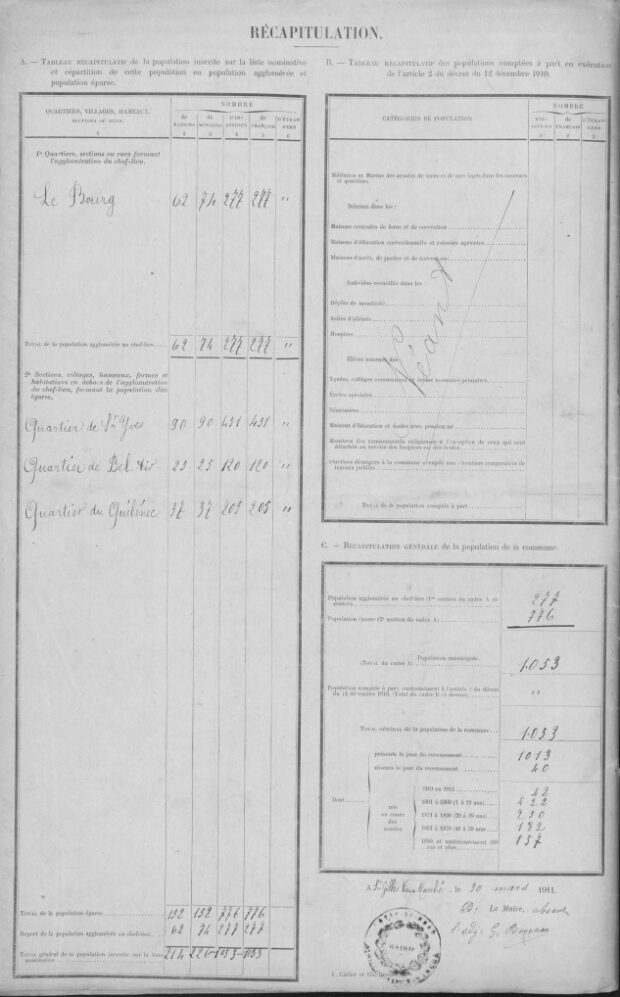 RÉCAPITULATION.
A. — TABLEAU RÉCAPITULATIF de la population inscrite sur la liste nominative
et répartition de cette population en population agglomérée et
population éparse.
QUARTIERS, VILLAGES, HAMEAUX,
SECTIONS OU RUES.
NOMBRE
de MAISONS
de MÉNAGES
d'INDIVIDUS
de FRANÇAIS
d'ÉTRANGERS
1 2 3 4 5 6
1º Quartiers, sections ou rues formant
l'agglomération du chef-lieu.
Le Bourg 62 74 277 277 "
TOTAL de la population agglomérée au chef-lieu 62 74 277 277 "
2º Sections, villages, hameaux, fermes et
habitations en dehors de l'agglomération
du chef-lieu, formant la population dite
éparse.
Quartier de St Yves 90 90 451 451 "
Quartier de Bel-Air 25 25 120 120 "
Quartier du Quélénec 37 37 205 205 "
TOTAL de la population éparse 152 152 776 776
Report de la population agglomérée au chef-lieu 62 74 277 277
TOTAL général de la population inscrite sur la liste
nominative 214 226 1053 1053
B. — TABLEAU RÉCAPITULATIF des populations comptées à part en exécution
de l'article 2 du décret du 12 décembre 1910.
CATÉGORIES DE POPULATION
NOMBRE
d'INDIVIDUS
de FRANÇAIS
d'ÉTRANGERS
Militaires et Marins des armées de terre et de mer logés dans les casernes
et quartiers
Détenus dans les :
Maisons centrales de force et de correction
Maisons d'éducation correctionnelle et colonies agricoles
Maisons d'arrêt, de justice et de correction
Individus recueillis dans les :
Dépôts de mendicité
Asiles d'aliénés
Hospices
Néant
Élèves internes des
Lycées, collèges communaux et écoles normales primaires
Écoles spéciales
Séminaires
Maisons d'éducation et écoles avec pension
Membres des communautés religieuses à l'exception de ceux qui sont
détachés au service des hospices ou des écoles
étrangers à la commune occupés aux chantiers temporaires de
travaux publics
TOTAL de la population comptée à part
C. — RÉCAPITULATION GÉNÉRALE de la population de la commune.
Population agglomérée au chef-lieu (1re section du cadre A ci-
contre) 277
Population éparse (2e section du cadre A) 776
Population municipale.
(Total du cadre A) 1.053
Population comptée à part conformément à l'article 2 du décret
du 12 décembre 1910. (Total du cadre B ci-dessus) "
TOTAL GÉNÉRAL de la population de la commune 1.053
présente le jour du recensement 1013
absente le jour du recensement 40
Dont
nés
au cours
des
années
1910 ou 1911 42
1891 à 1909 (1 à 19 ans) 422
1871 à 1890 (20 à 39 ans) 250
1851 à 1870 (40 à 59 ans) 182
1850 et antérieurement (60
ans et plus) 157
A St Gilles Vieux Marché, le 30 mars 1911.
Le Maire, absent
l'adj. G.